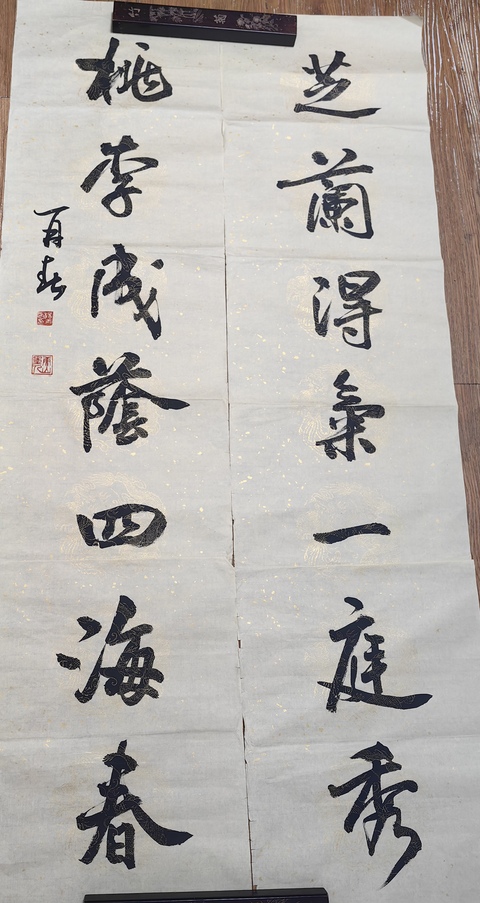 芝蘭得氣一庭秀
桃李成蔭四海春